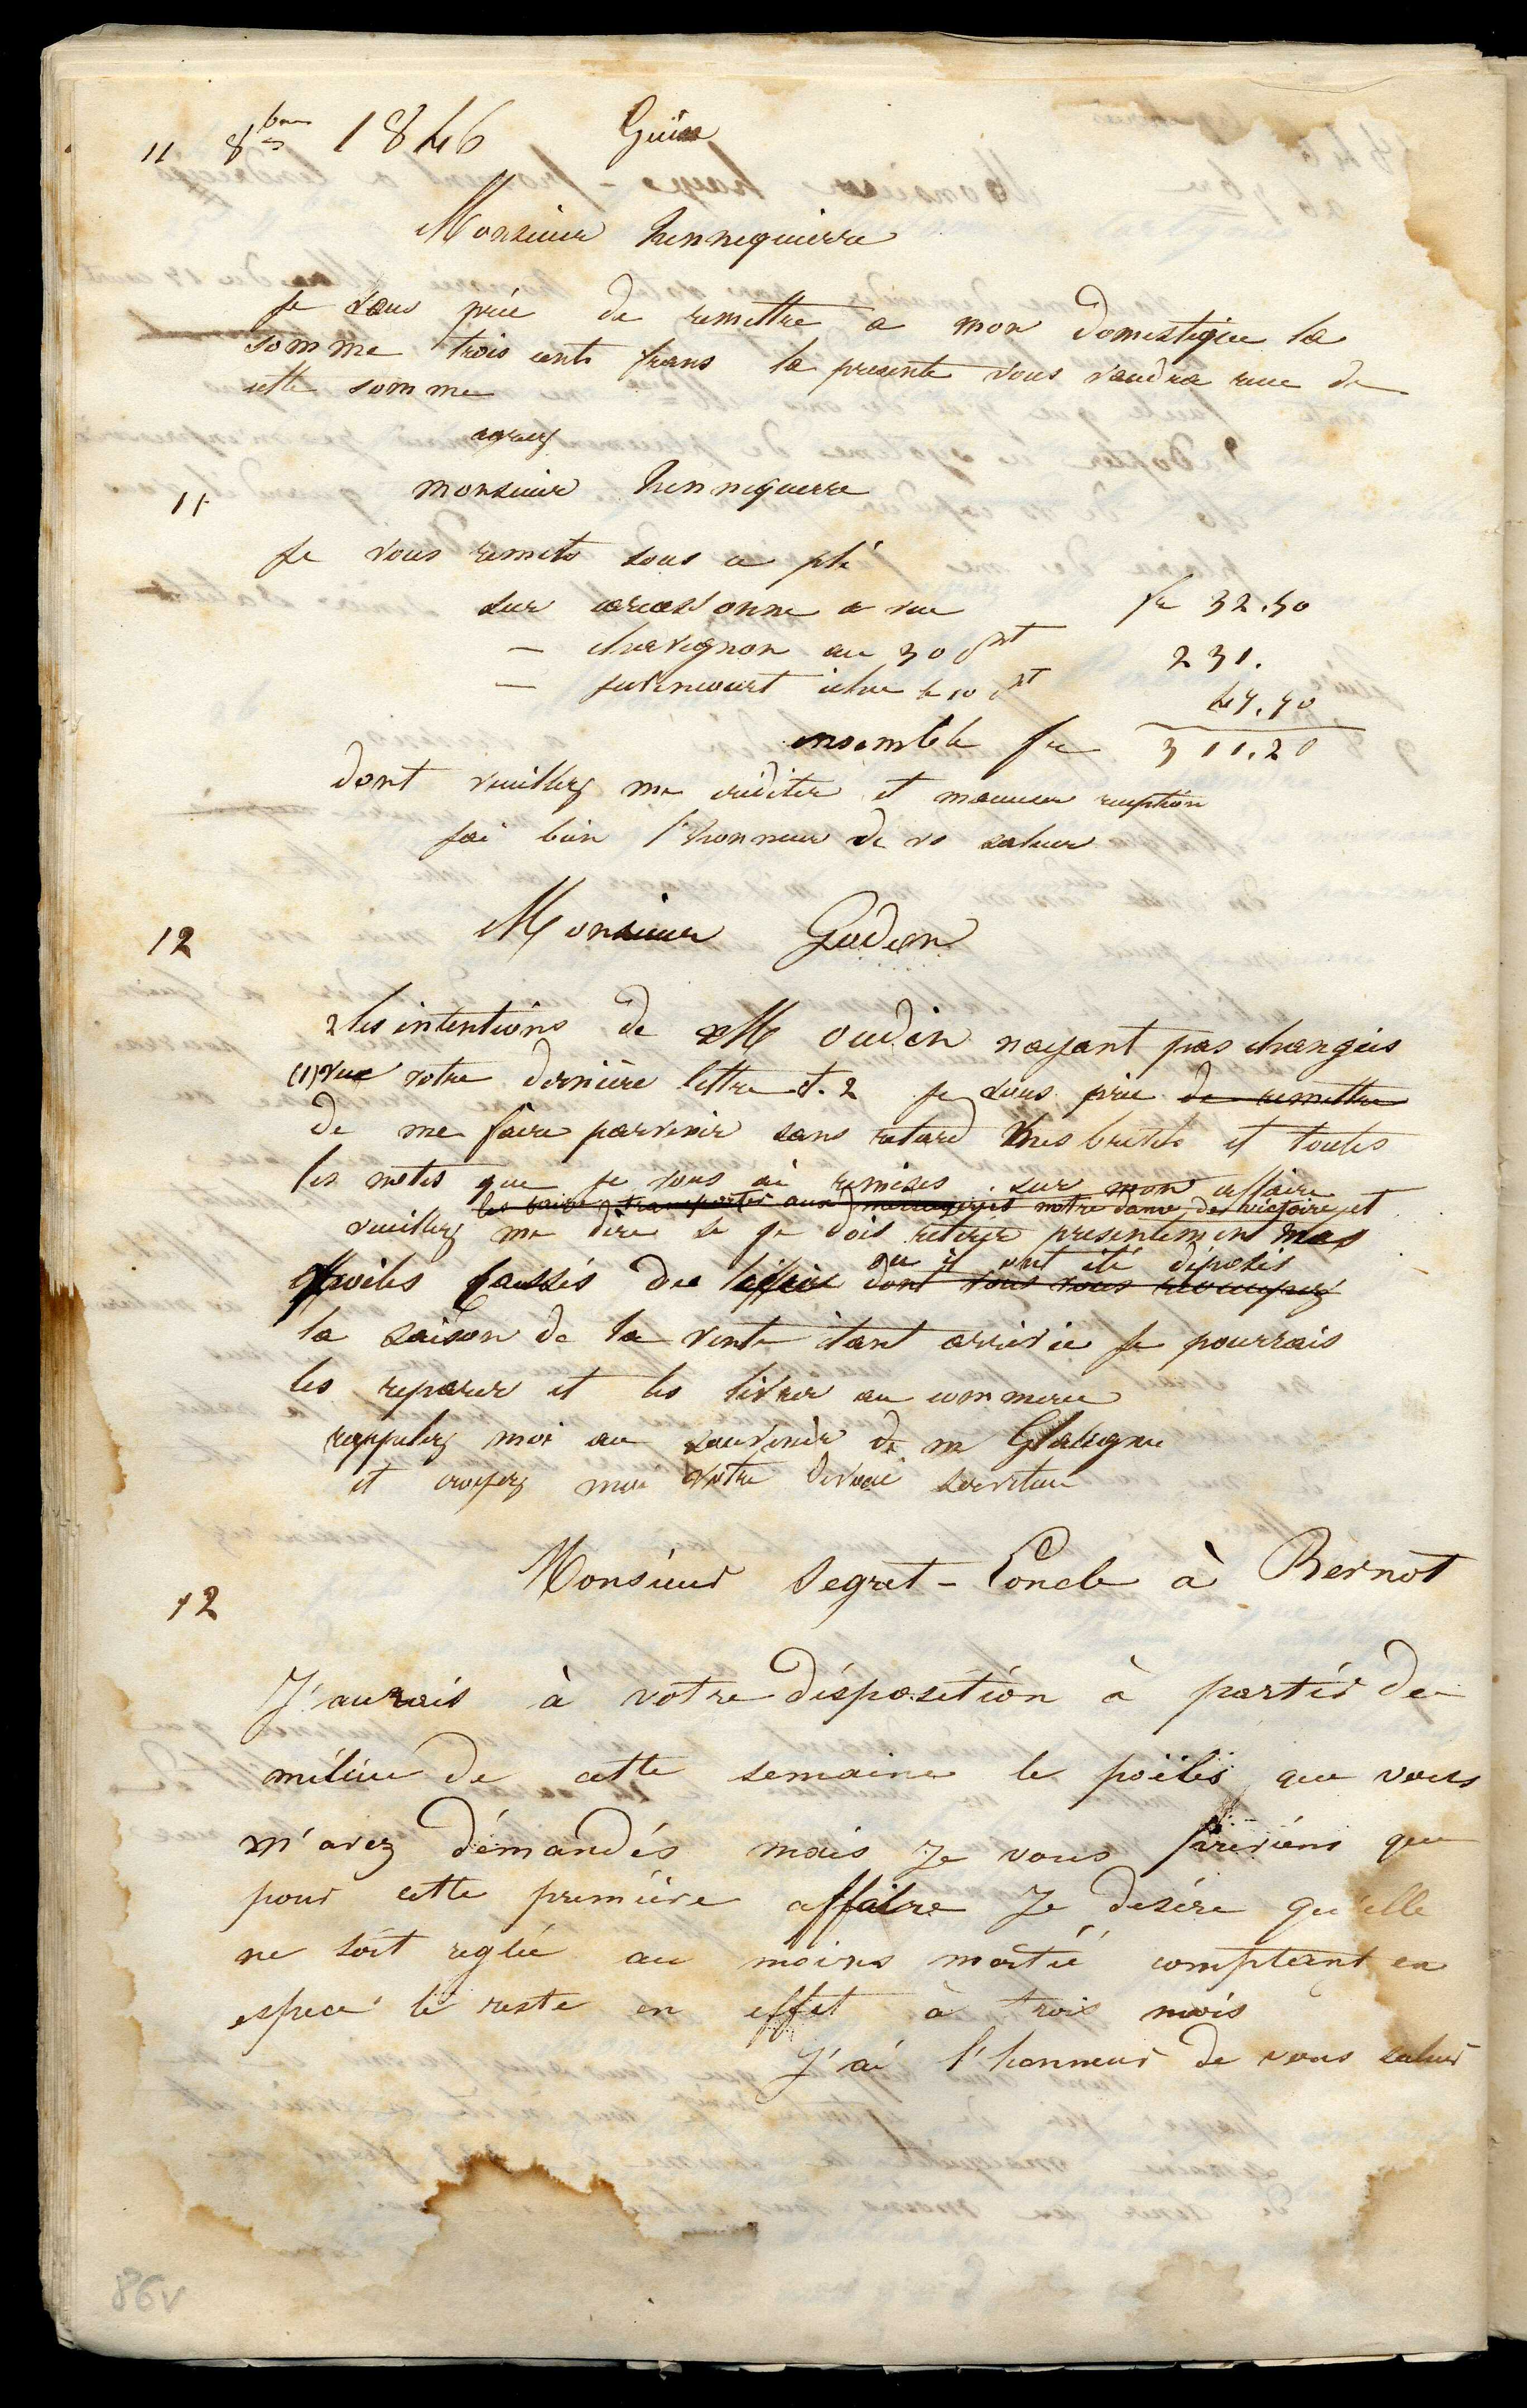 11 8bre 1846 Guise
Monsieur hennequierre
je vous prie de remettre a mon domestique la
somme trois cents frans la presente vous vaudra recu de
cette somme
agreez
11 monsieur hennequerre
je vous remets sous ce pli
sur carcassonne a vue fr 32.50
— chavignon au 30 ct 231.
— 47.70
ensemble fr 311.20
dont veuillez me créditer et maccuser reception
jai bien l'honneur de vs saluer
12 Monsieur Gudin
2 les intentions de M oudin nayant pas changées
(1) vue votre dernière lettre et. 2 je vous prie de remettre
de me faire parvenir sans retard mes brevets et toutes
les notes que je vous ai remises sur mon affaire
les faire transporter aux messageries notre dame des victoires et
veuillez me dire si je dois retirer presentement mes
poiles laissés ou il ont été déposés
dont vous vous occupez
la saison de la vente étant arrivée je pourrais
les reparer et les livrer au commerce
rappelez moi au souvenir de m Glavigne
et croyez moi votre devoué serviteur
12 Monsieur Segret-Poncle à Bernot
J'aurais à votre disposition à partir de
milieu de cette semaine le poëles que vous
m'avez démandés mais Je vous préviens que
pour cette première affaire Je desire qu'elle
ne soit reglée au moins moitié comptant en
espece le reste en effet à trois mois
J'ai l'honneur de vous saluer
86v